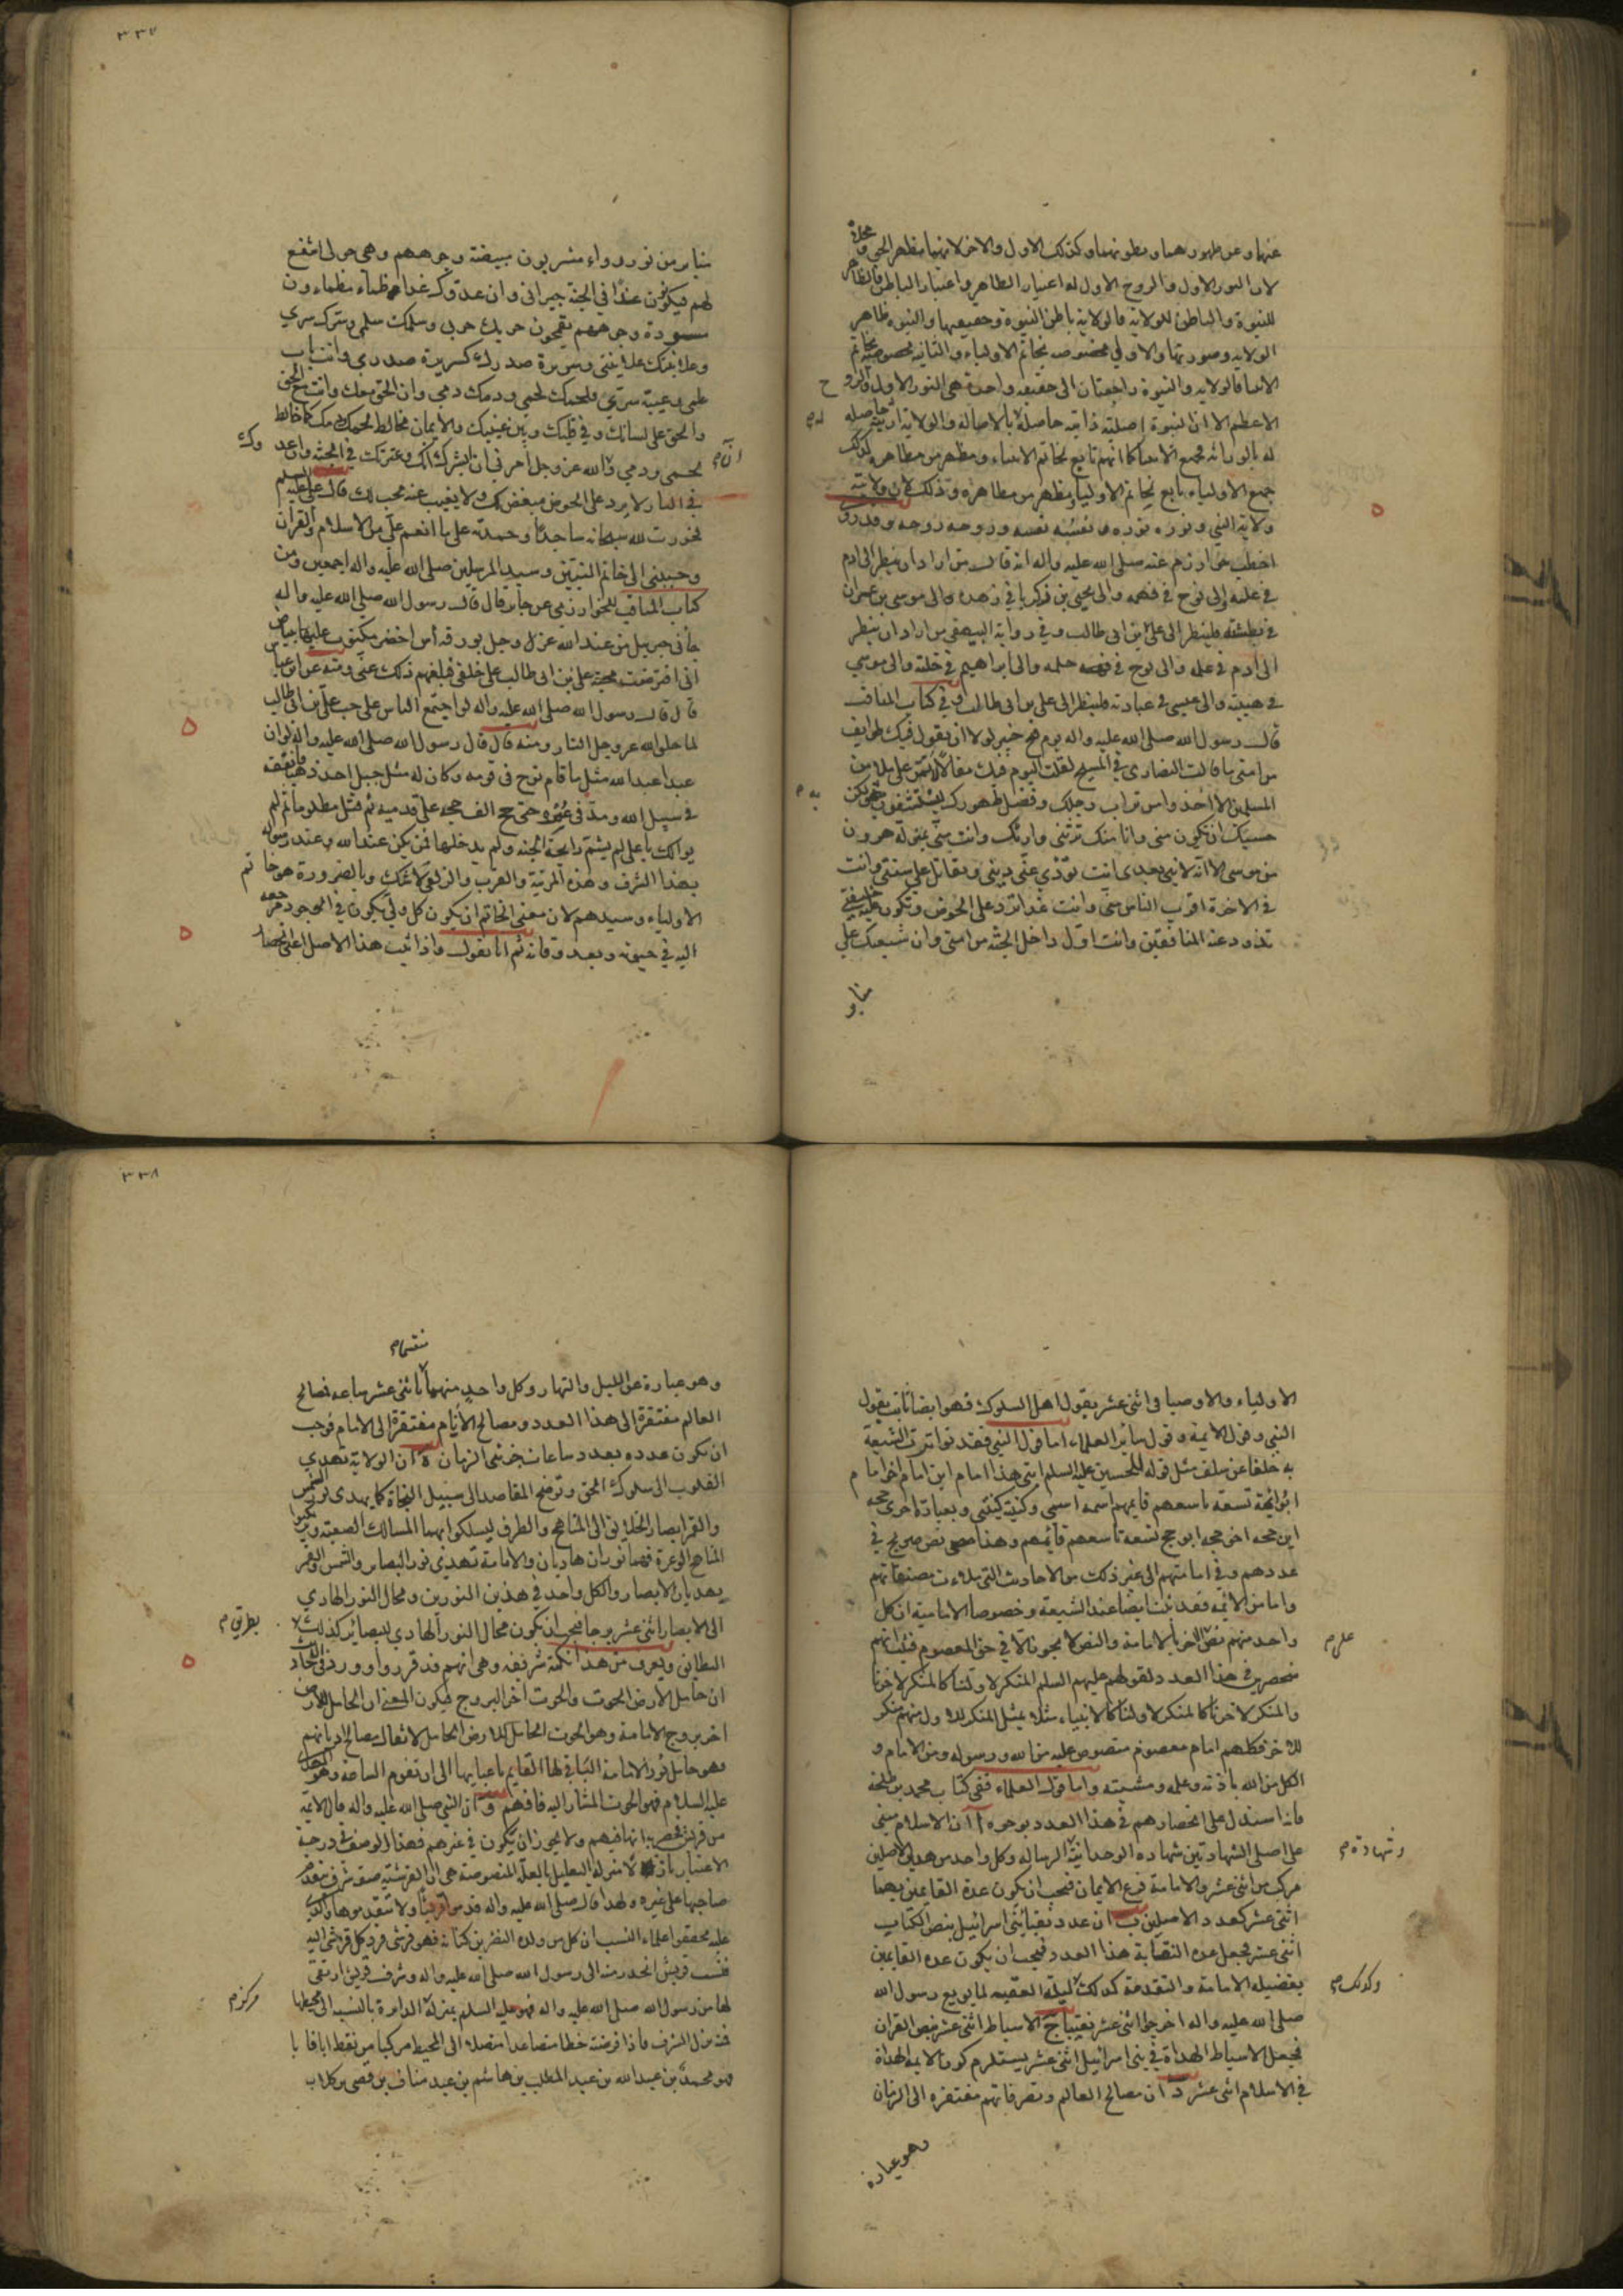 ٣٣٧
عنها وعن ظهورهما وبطونهما وكذلك الاول والاخر لانهما مظهر الحق ومجلاه
لان النور الاول والروح الاول له اعتبار الظاهر واعتبار الباطن فالظاهر
للنبوة والباطن للولاية فالولاية باطن النبوة وحقيقتها والنبوة ظاهر
الولاية وصورتها والاولى مخصوصة بخاتم الاولياء والثانية مخصوصة بخاتم
الانبيا فالولاية والنبوة راجعتان الى حقيقة واحدة هى النور الاول والروح
الاعظم الا ان النبوة اصلية ذاتية حاصلة بالاصالة والولاية ارثية حاصلة
له بالوراثة فجميع الانبيا كما انهم تابع لخاتم الانبياء ومظهر من مظاهره كذلك
جميع الاولياء تابع لخاتم الاوليا ومظهر من مظاهره وذلك لان ولايته
ولاية النبي ونوره نوره ونفسه نفسه وروحه روحه وقد روى
اخطب خوارزم عنه صلى الله عليه واله انه قال من اراد ان ينظر الى ادم
في علمه والى نوح في فهمه والى يحيى بن زكريا في زهده والى موسى بن عمران
في بطشه فلينظر الى على ابن ابى طالب وفي رواية البيهقي من اراد ان ينظر
الى ادم في علمه والى نوح في حلمه والى ابراهيم في خلته والى موسى
في هيبته والى عيسى في عبادته فلينظر الى على بن ابى طالب وفي كتاب المناقب
قال رسول الله صلى الله عليه واله يوم فتح خيبر لولا ان يقول فيك طوايف
من امتى ما قالت النصارى في المسيح لقلت اليوم فيك مقالا لا تمر على ملا من
المسلمين الا اخذوا من تراب رجليك وفضل طهورك يستشفون به ولكن
حسبك ان تكون منى وانا منك ترثنى وارثك وانت منى بمنزلة هرون
من موسى الا انه لا نبي بعدى انت تؤدي عنى ديني وتقاتل على سنتى وانت
في الاخرة اقرب الناس منى وانت غدا ترد على الحوض وتكون عليه خليفتى
تذود عنه المنافقين وانت اول داخل الجنة من امتى وان شيعتك على
منابر
منابر من نور رواء مشربون مبيضة وجوههم وهى حولى اشفع
لهم فيكونون غدا في الجنة جيرانى وان عدوك غدا ظماء مظماءون
مسودة وجوههم يقمحون حربك حربي وسلمك سلمى وسرك سري
وعلانيتك علانيتى وسريرة صدرك كسريرة صدري وانت باب
علمى وعيبة سري ولحمك لحمى ودمك دمى وان الحق معك وانت مع الحق
والحق على لسانك وفي قلبك وبين عينيك والايمان مخالط لحمك ودمك كما خالط
لحمى ودمى والله عز وجل امرني ان ابشرك انك وعترتك في الجنة وان عدوك
في النار لا يرد على الحوض مبغض لك ولا يغيب عنه محب لك قال على عليه السلم
فخررت لله سبحانه ساجدا وحمدته على ما انعم على من الاسلام والقرآن
وحببنى الى خاتم النبيين وسيد المرسلين صلى الله عليه واله اجمعين ومن
كتاب المناقب للخوارزمي عن جابر قال قال رسول الله صلى الله عليه واله
جانى جبريل من عند الله عز وجل بورقة آس اخضر مكتوب عليها ببياض
انى افترضت محبة على بن ابى طالب على خلقى فبلغهم ذلك عنى ومنه عن ابن عباس
قال قال رسول الله صلى الله عليه واله لو اجتمع الناس على حب على بن ابى طالب
لما خلق الله عز وجل النار ومنه قال قال رسول الله صلى الله عليه واله لو ان
عبدا عبد الله مثل ما قام نوح في قومه وكان له مثل جبل احد ذهبا فانفقه
في سبيل الله ومد في عمره حتى حج الف حجة على قدميه ثم قتل مظلوما ثم لم
يوالك يا على لم يشم رايحة الجنة ولم يدخلها فمن يكن عند الله وعند رسوله
بهذا الشرف وهذه المرتبة والقرب والزلفى وبالضرورة هو خاتم
الاولياء وسيدهم لان معنى الخاتم ان يكون كل ولى يكون في الوجود مرجعه
اليه في حيوته وبعد وفاته ثم انا نقول واذا ثبت هذا الاصل انحصار
٣٣٨
الاولياء والاوصيا في اثنى عشر بقول اهل السلوك فهو ايضا ثابت بقول
النبي وقول الايمة وقول ساير العلماء اما قول النبي فقد تواترت الشيعة
به خلفا عن سلف مثل قوله للحسين عليه السلم ابنى هذا امام ابن امام اخو امام
ابو ائمة تسعة تاسعهم قايمهم اسمه اسمى وكنيته كنيتى وبعبارة اخرى حجة
ابن حجة اخو حجة ابو حجج تسعة تاسعهم قايمهم وهذا نص صريح في
عددهم وفي امامتهم الى غير ذلك من الاحاديث التى ملاءت مصنفاتهم
واما من الائمة فقد ثبت ايضا عند الشيعة وخصوصا الامامية ان كل
واحد منهم نص على الاخر بالامامة والنص لا يجوز الا في حق المعصوم فثبت انهم
منحصرين في هذا العدد لقولهم عليهم السلم المنكر لاولنا كالمنكر لاخرنا
والمنكر لاخرنا كالمنكر لاولنا كالانبياء مثلا بمثل المنكر للاول منهم منكر
للاخر فكلهم امام معصوم منصوص عليه من الله ورسوله ومن الامام و
الكل من الله باذنه وعلمه ومشيته واما قول العلماء ففى كتاب محمد بن طلحة
فانه استدل على انحصارهم في هذا العدد بوجوه آ ان الاسلام مبنى
على اصلى الشهادتين شهادة الوحدانية وشهادة الرسالة وكل واحد من هذين الاصلين
مركب من اثنى عشر والامامة فرع الايمان فيجب ان يكون عدة القايمين بها
اثنى عشر كعدد الاصلين ب ان عدد نقباء بنى اسرائيل بنص الكتاب
اثنى عشر فجعل عدة النقابة هذا العدد فيجب ان يكون عدة القايمين
بفضيلة الامامة والتقدمة كذلك وكذلك ليلة العقبة لما بويع رسول الله
صلى الله عليه واله اخرجوا اثنى عشر نقيبا ج الاسباط اثنى عشر بنص القران
فجعل الاسباط الهداة في بنى اسرائيل اثنى عشر يستلزم كون الايمة الهداة
في الاسلام اثنى عشر د ان مصالح العالم وتصرفاتهم مفتقرة الى الزمان
وهو عبارة
وهو عبارة عن الليل والنهار وكل واحد منهما منقسم باثنى عشر ساعة فصالح
العالم مفتقرة الى هذا العدد ومصالح الانام مفتقرة الى الامام فوجب
ان يكون عدده بعدد ساعات جزئى الزمان ه ان الولاية تهدي
القلوب الى سلوك الحق وتوضح المقاصد الى سبيل النجاة كما يهدى نور الشمس
والقمر ابصار الخلايق الى المناهج والطرق ليسلكوا بهما المسالك الصعبة
المناهج الوعرة فهما نوران هاديان والامامة تهدي نور البصاير والشمس والقمر
يهديان الابصار والكل واحد في هذين النورين ومحال النور الهادي
الى الابصار اثنى عشر برجا فيجب ان يكون محال النور الهادي للبصاير كذلك
بطريق
البطايق ويعرف من هذا نكتة شريفة وهى انهم قد قرروا وورد في
ان حامل الارض الحوت والحوت آخر البروج فيكون المعنى ان الحامل للارض
اخر بروج الامامة وهو الحوت الحامل للارض الحامل لاثقال مصالح اديانهم
وهو حامل نور الامامة الباقى لها القايم باعبايها الى ان تقوم الساعة وهو المهدى
عليه السلام فهو الحوت المشار اليه فافهم و ان النبي صلى الله عليه واله قال الايمة
من قريش فحصرها فيهم ولا يجوز ان يكون في غيرهم فهذا الوصف درجة
الاعتبار بمنزلة التعليل بالعلة المنصوصة هى ان القرشية صفة شرف تقدم
صاحبها على غيره ولهذا قال صلى الله عليه واله قدموا قريشا ولا تتقدموها والذى
عليه محققوا علماء النسب ان كل من ولده النضر بن كنانة فهو قرشى فرد كل قرشى اليه
فنسب قريش انحدر منه الى رسول الله صلى الله عليه واله وشرف قريش ارتقى
لها من رسول الله صلى الله عليه واله فهو عليه السلم بمنزلة مركز الدايرة بالنسبة الى محيطها
فمنه منزل الشرف فاذا فرضت خطا متصاعدا متصلا الى المحيط مركبا من نقط ابا فابا
فهو محمد بن عبد الله بن عبد المطلب بن هاشم بن عبد مناف بن قصى بن كلاب